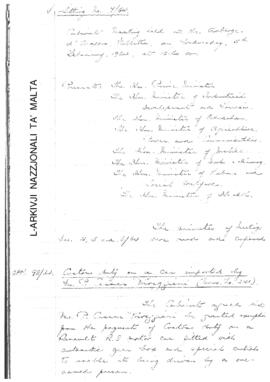 Sitting No. 7/64.
Cabinet Meeting held at the Auberge
d'Aragon Valletta, on Wednesday, 5th
February, 1964, at
L-ARKIVJI NAZZJONALI TA' MALTA
Present: The Hon. Prime Minister
The Hon. Minister of Industrial
Development and Tourism
The Hon. Minister of Education
The Hon. Minister of Agriculture,
Power and Communications
The Hon. Minister of Justice
The Hon. Minister of Works & Housing
The Hon. Minister of Labour and
Social Welfare
The Hon. Minister of Health.
The minutes of meetings
Nos. 4, 5 and 6/64 were read and approved
Customs duty on a car imported by
The Cabinet agreed that
Mr. P. be granted exemption
from the payment of Customs duty on a
Renault R.8 motor car fitted with
automatic gear box and special controls
to enable its being driven by a one-
armed person.